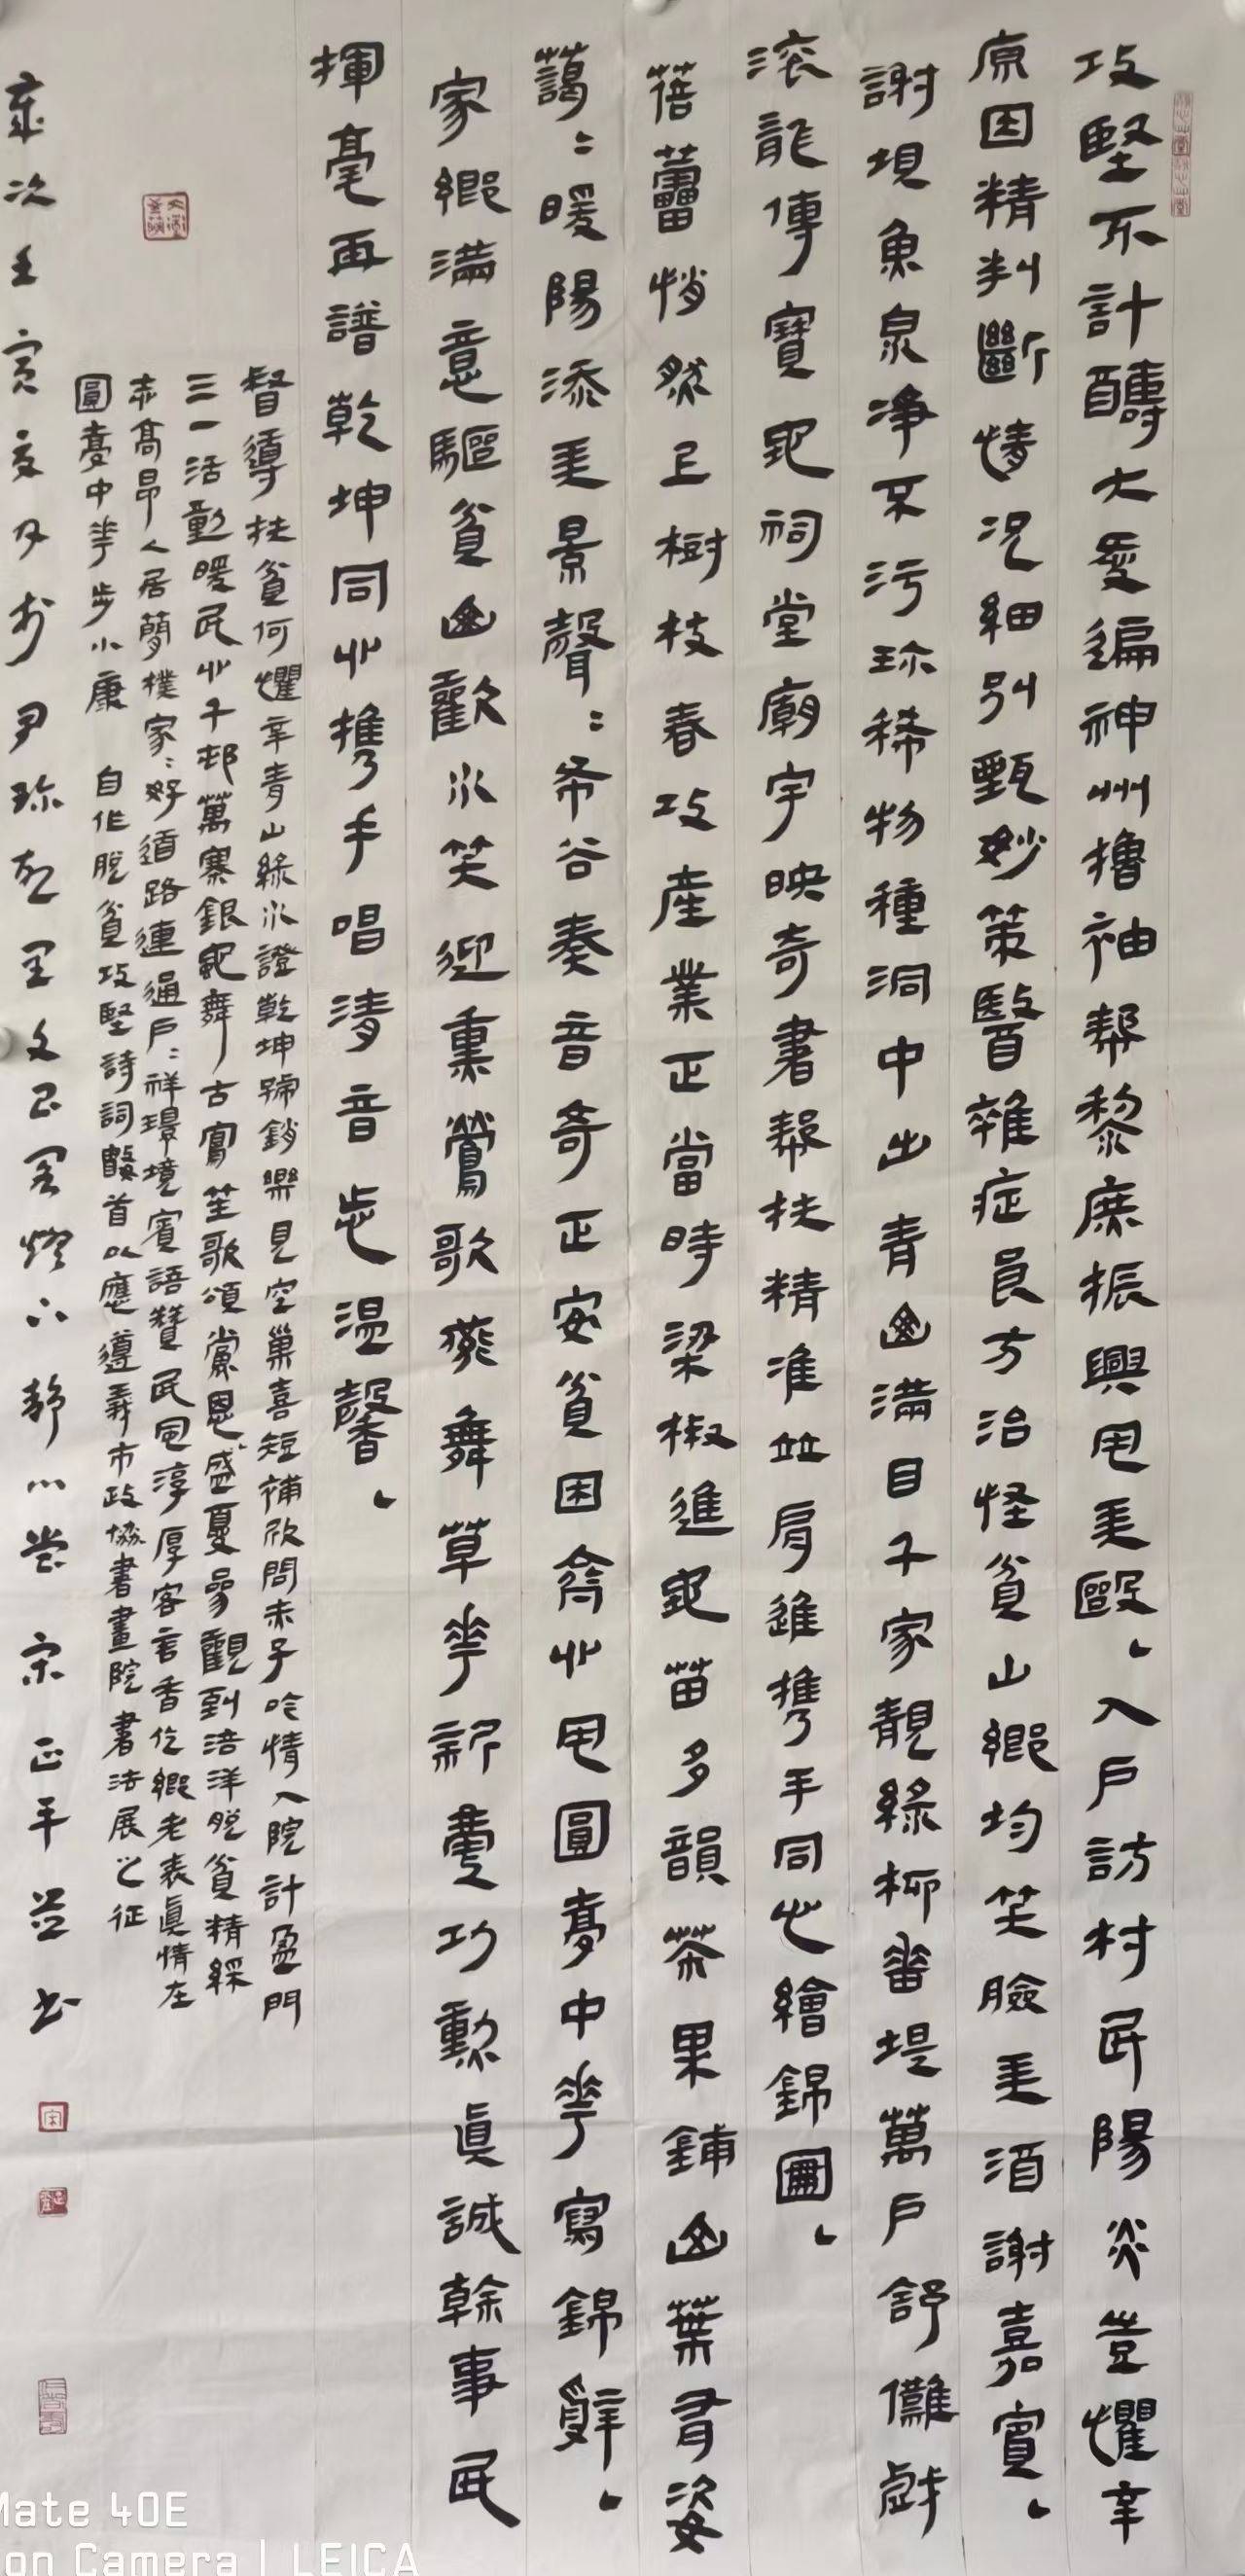 攻堅不計酬大愛遍神州擼袖幫黎庶振興甩美毆入戶訪村民陽炎豈懼辛
原因精判斷情况細別甄妙策醫雜症良方治怪貧山鄉均笑臉美酒謝嘉賓
謝垻魚泉净不污珎稀物種洞中出青山滿目千家靚綠柳畨堤萬戶舒儺戲
滚龍傳寶地祠堂廟宇映奇書幫扶精准並肩進携手同心繪錦圖
蓓蕾悄然上樹枝春攻產業正當時梁椒進地苗多韻茶果鋪山葉有姿
藹〻暖陽添美景聲〻希谷奏音奇正安貧困齊兆甩圓夢中華寫錦辭
家鄉滿意驅貧山歡水笑迎熏鶯歌燕舞草華新臺功勳真誠幹事民
揮毫再譜乾坤同兆携手唱清音忐温馨
督導扶貧何懼辛青山綠水證乾坤號銷樂見空巢喜短補欣問赤子吟情入院計盈門
三一活動暖民兆千邨萬寨銀地舞古寳笙歌頌黨恩盛夏曼觀到涪洋脫貧精綵
志高昂人居簡樸家〻好道路連通戶〻祥環境賓語贊民風淳厚客言香仡鄉老表真情在
圓夢中華步小康 自作脫貧攻堅詩詞數首以應遵義市政協書畫院書法展之征
歲次壬寅 尹珎 宋正平並書
Mate 40E
on Camera | LEICA